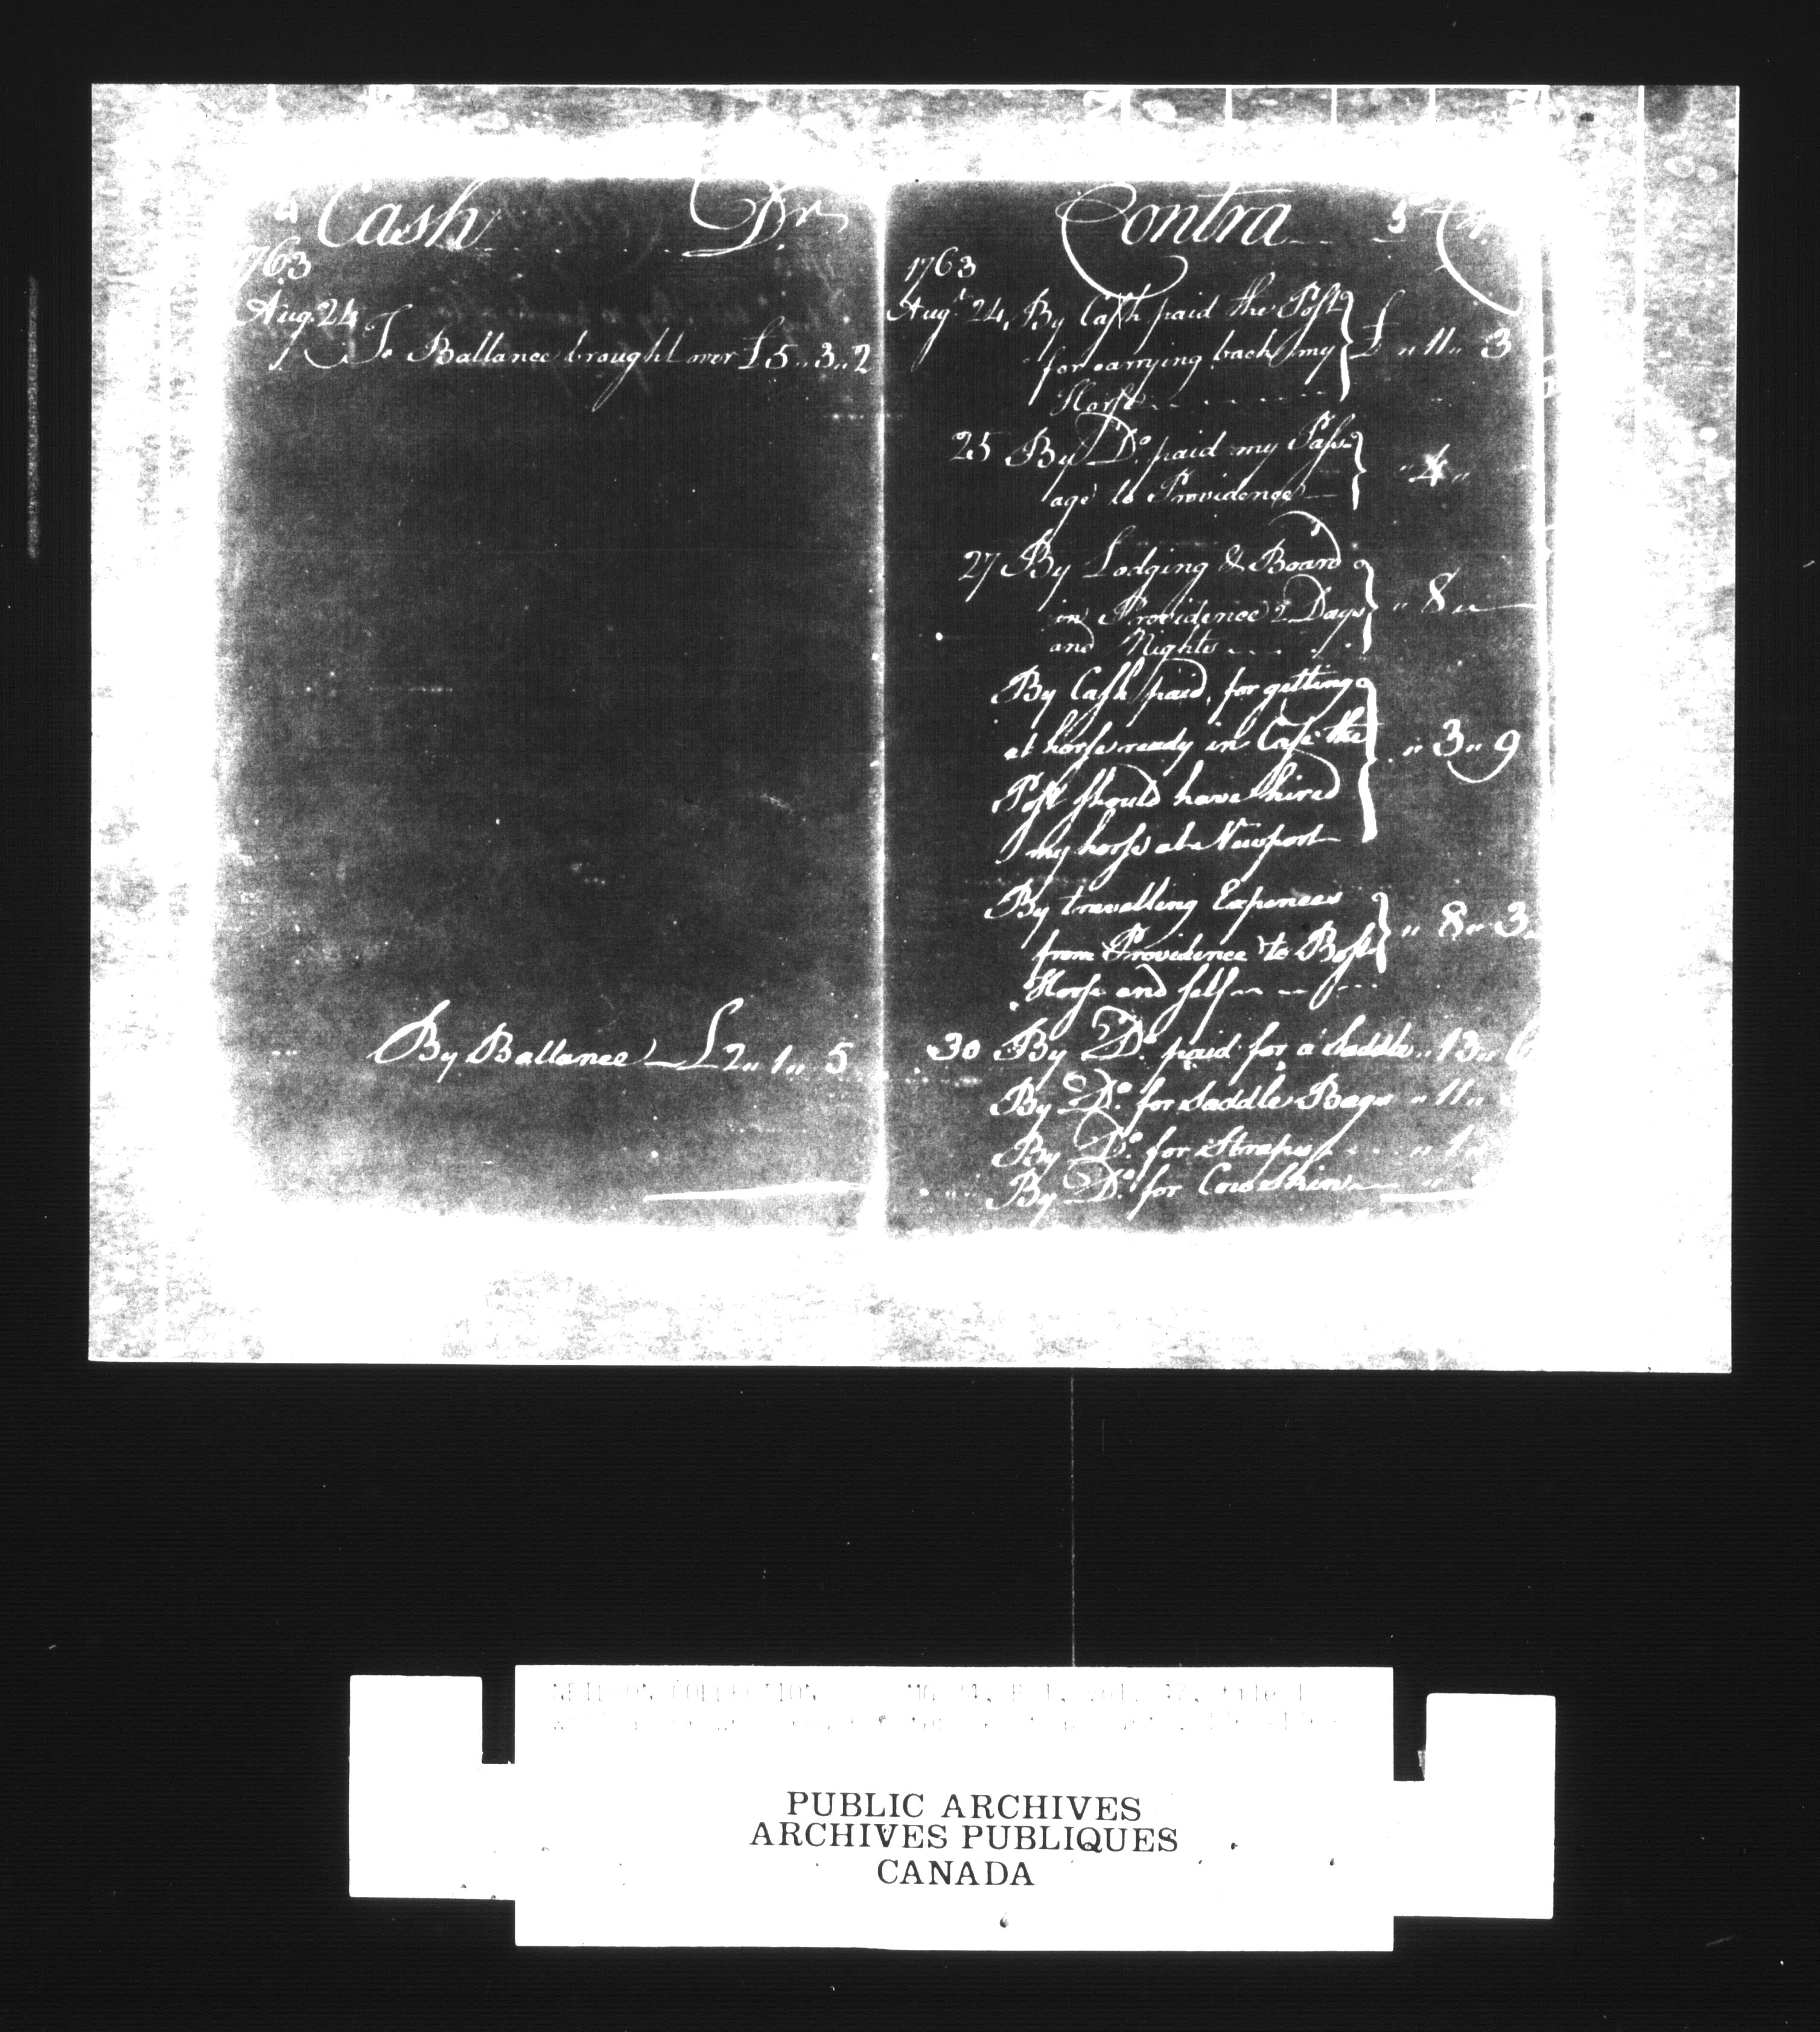 4 Cash Dr
1763
Aug. 24
To Ballance brought over £5..3..2
By Ballance £2..1..5
Contra 5 Cr.
1763
Augt 24. By Cash paid the Post
for carrying back my £ .. 11.. 3
Horse
25 By Do. paid my Pass
age to Providence .. 4 ..
27 By Lodging & Board
in Providence 2 Days .. 8 ..
and Nights
By Cash paid, for getting
at horse ready in Case the .. 3.. 9
Post should have hired
my horse at Newport
By travelling Expences
from Providence to Bost .. 8.. 3
Horse and self
30 By Do. paid for a Saddle .. 13..
By Do. for Saddle Bags .. 11..
By Do. for Straps .. 1..
By Do. for Cow Skin ..
NEILSON COLLECTION MG 24, B 1, vol.
PUBLIC ARCHIVES
ARCHIVES PUBLIQUES
CANADA